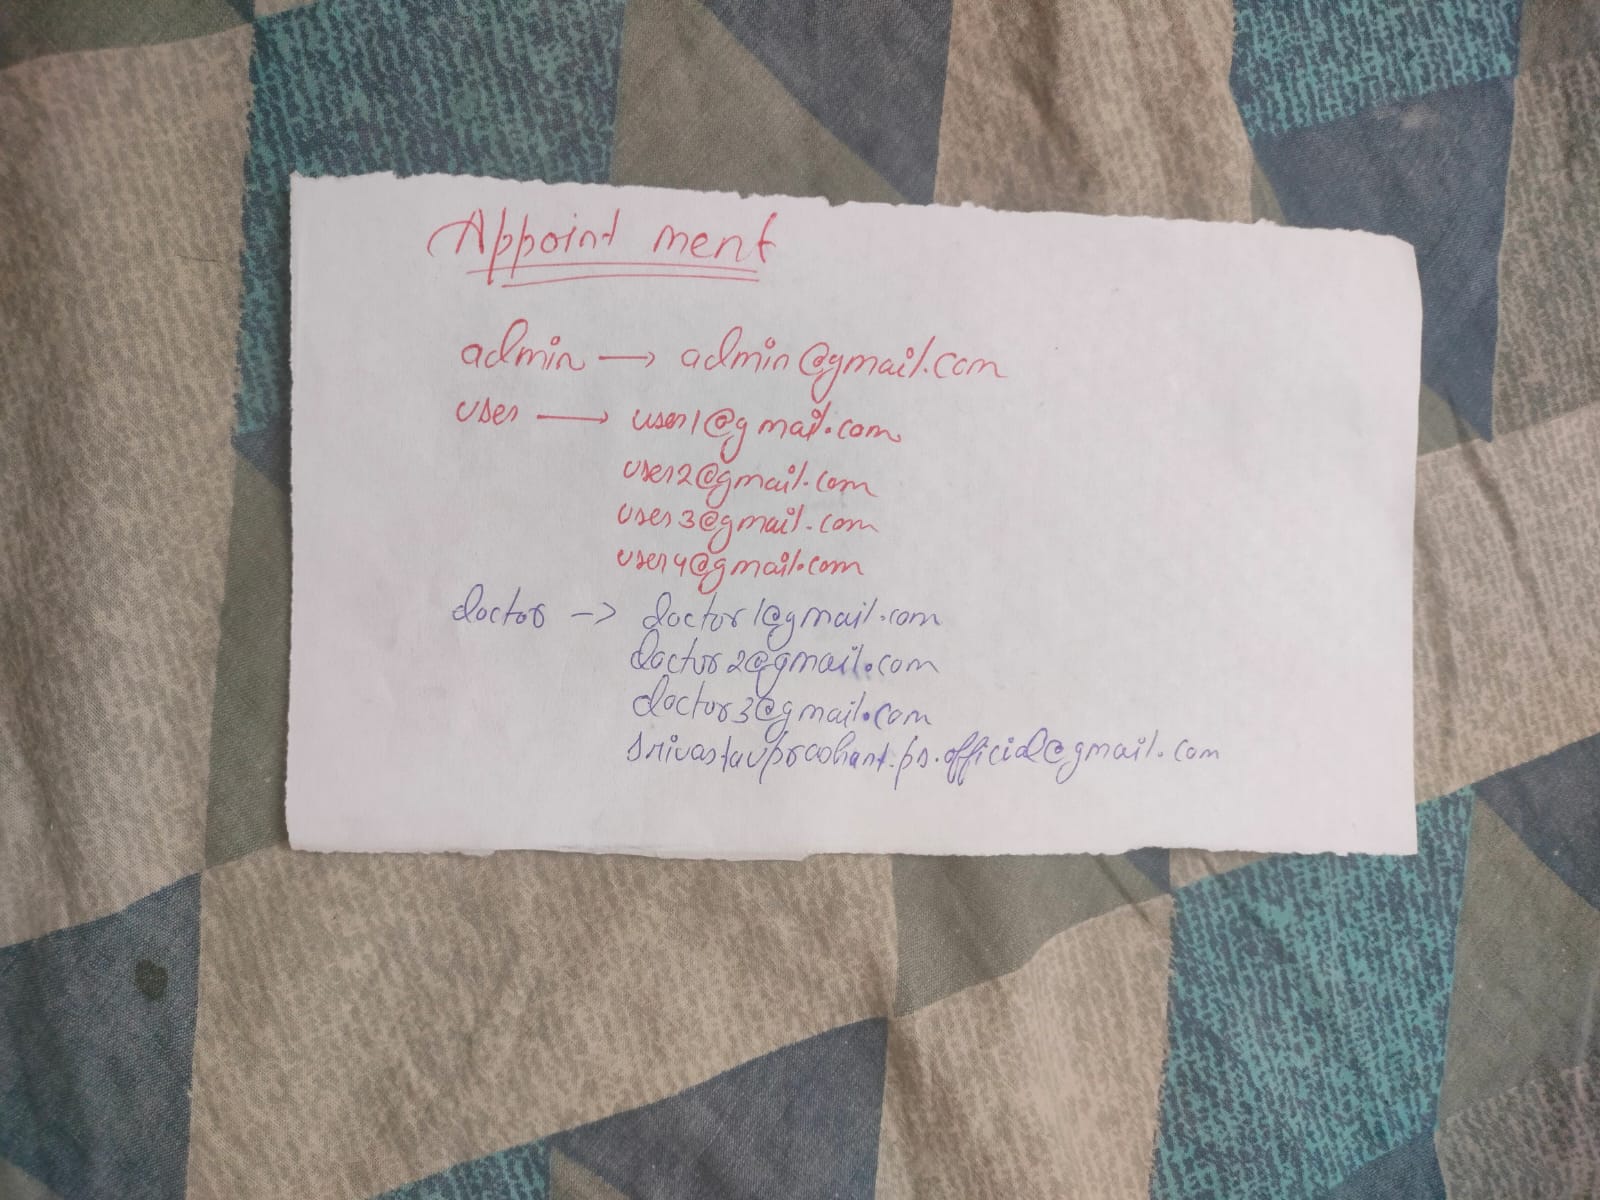 Appointment
admin → admin@gmail.com
user → user1@gmail.com
user2@gmail.com
user3@gmail.com
user4@gmail.com
doctor → doctor1@gmail.com
doctor2@gmail.com
doctor3@gmail.com
srivastavprashant.ps.official@gmail.com